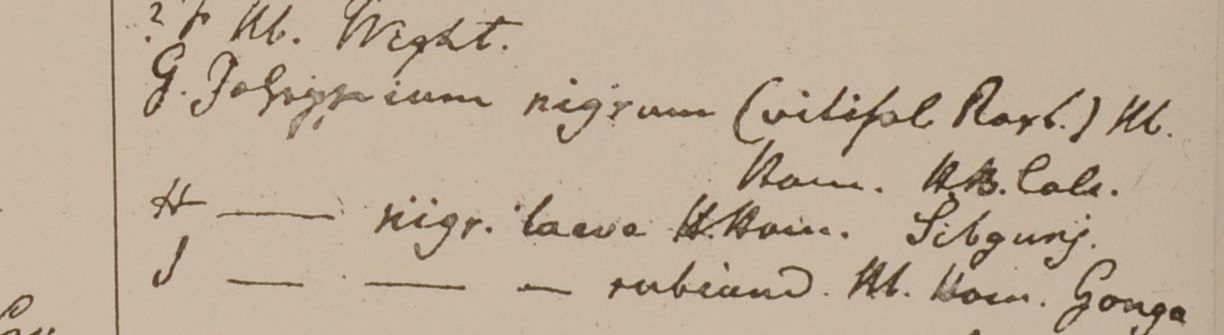 ? F Hb. Wight.
G. Gossypium nigrum (vitifol Roxb.) Hb.
Ham. HB. Calc.
H — nigr. laeve H. Ham. Sibgunj.
I — — — rubicund. Hb. Ham. Gonga